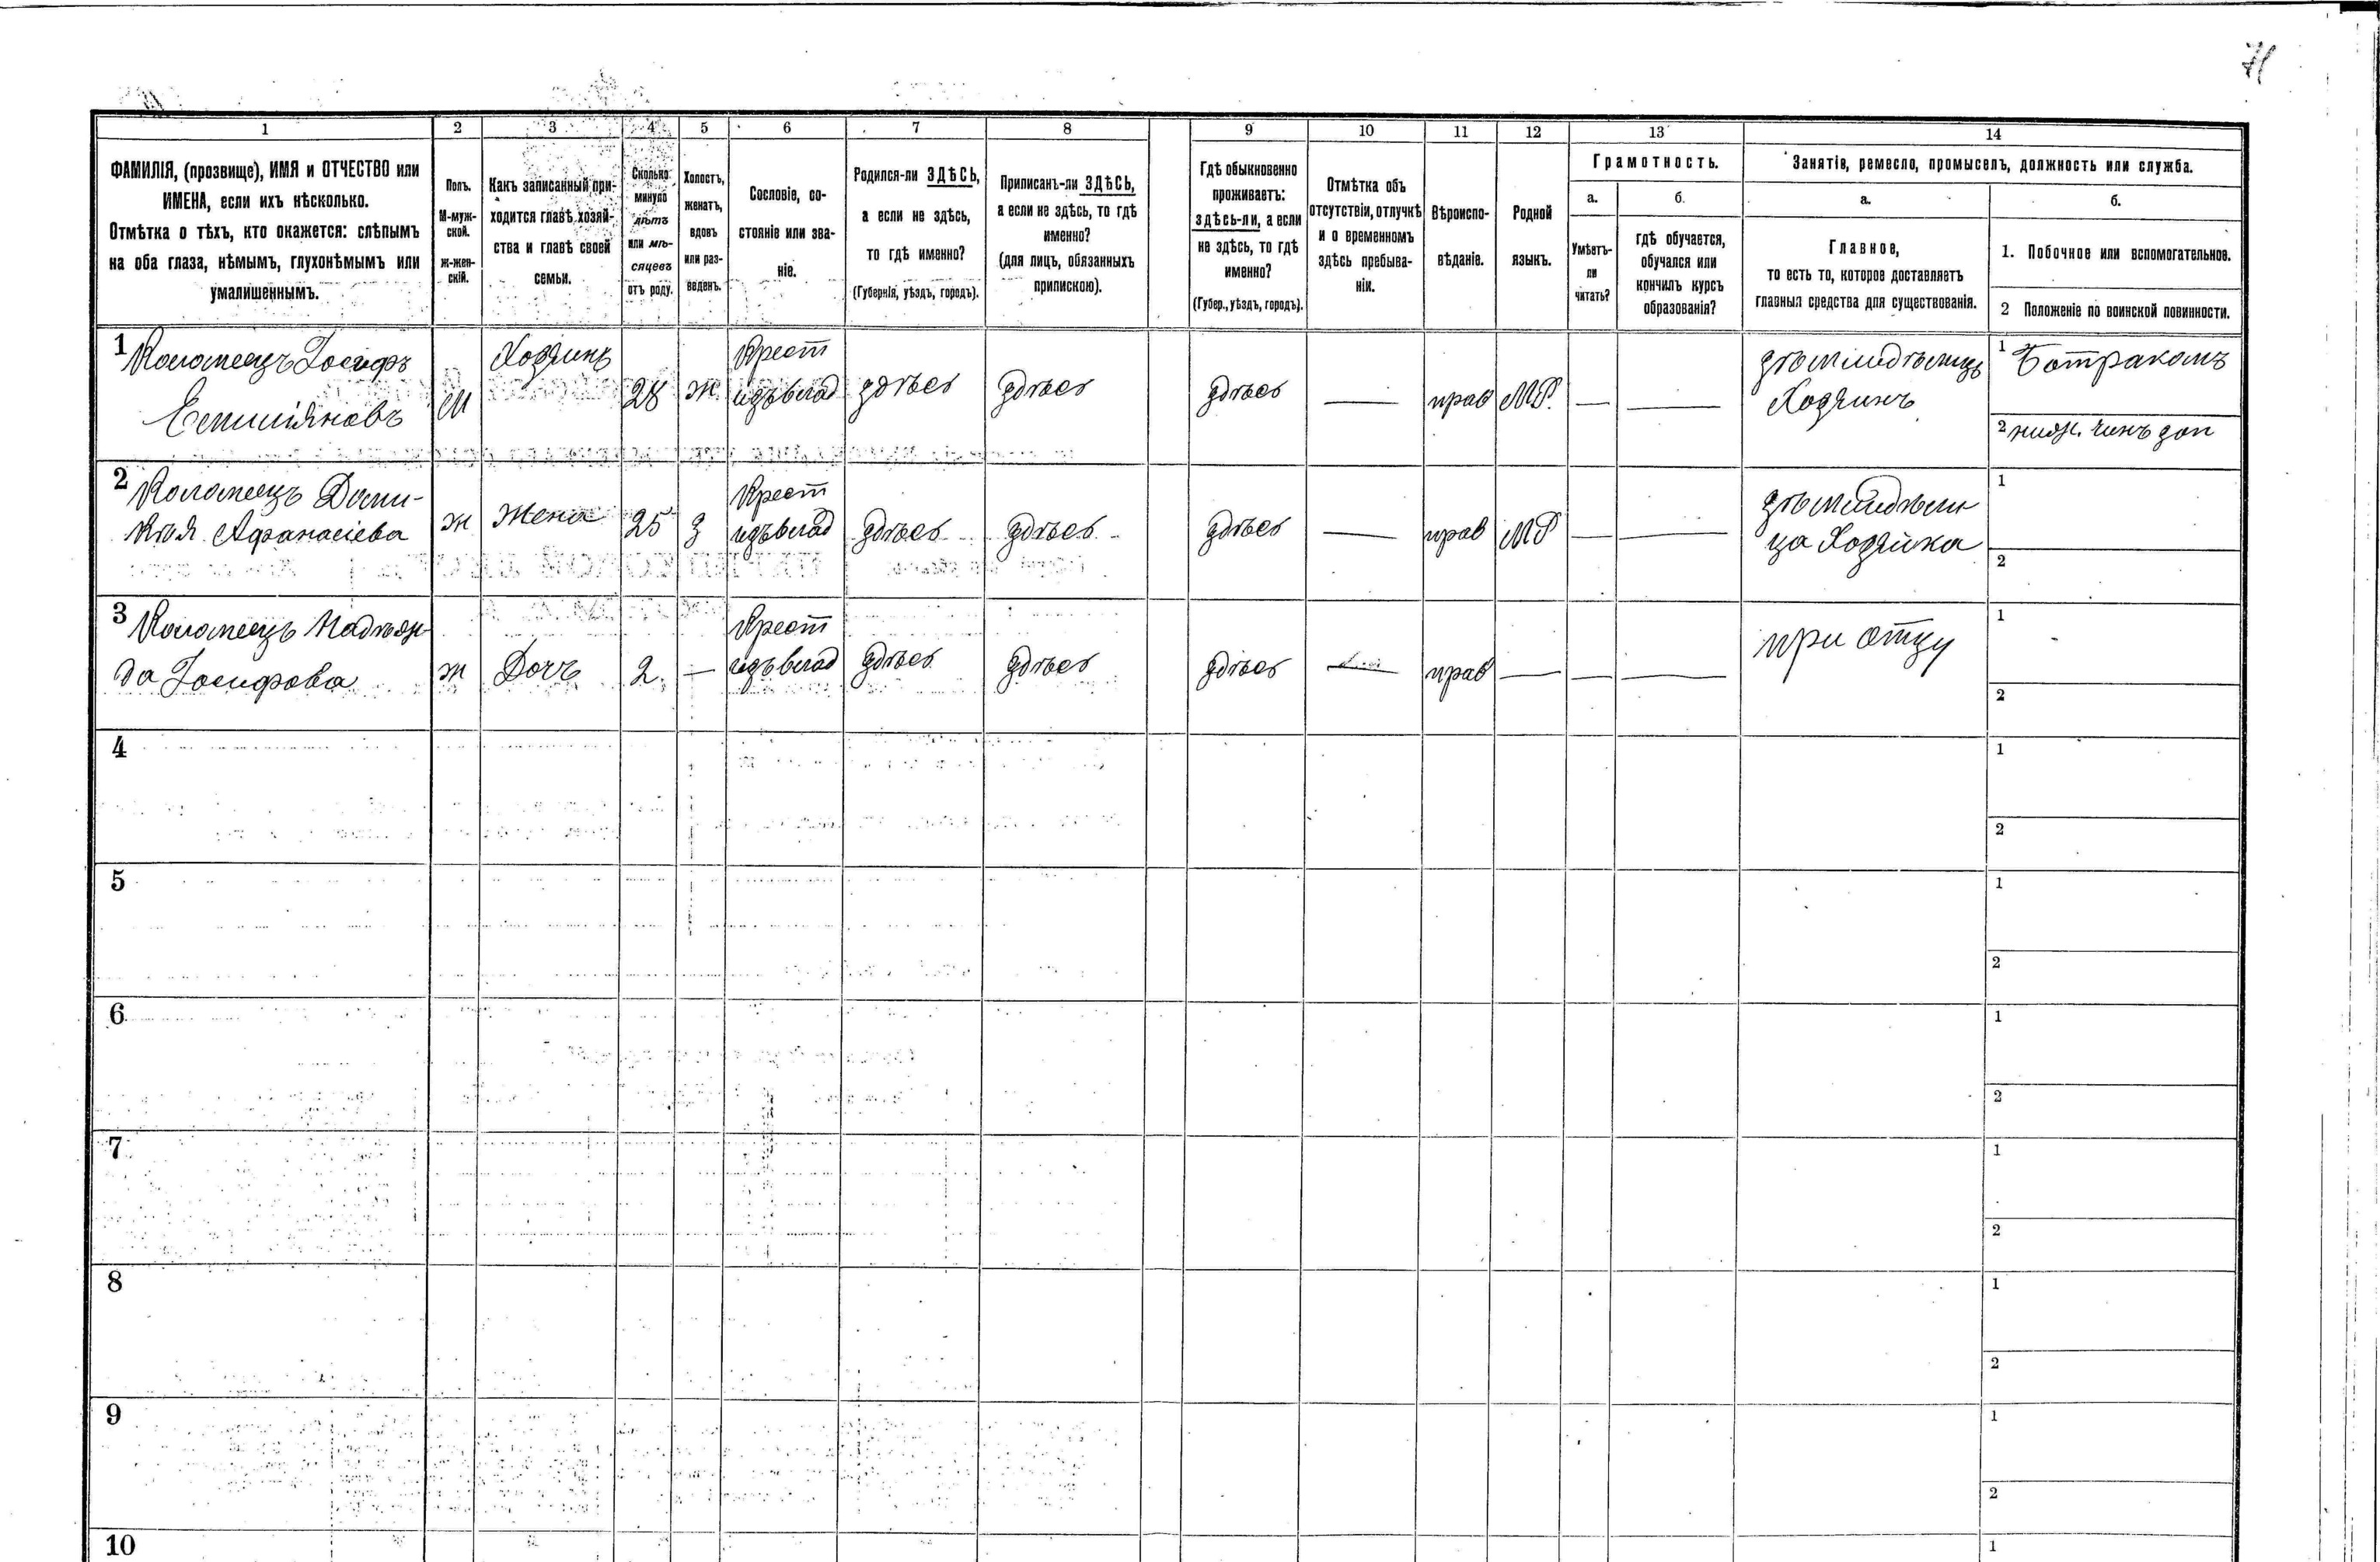 71
1 2 3 4 5 6 7 8 9 10 11 12 13 14
ФАМИЛІЯ, (прозвище), ИМЯ и ОТЧЕСТВО или
ИМЕНА, если ихъ нѣсколько.
Отмѣтка о тѣхъ, кто окажется: слѣпымъ
на оба глаза, нѣмымъ, глухонѣмымъ или
умалишеннымъ.
Полъ.
М-муж-
ской.
ж-жен-
скій.
Какъ записанный при-
ходится главѣ хозяй-
ства и главѣ своей
семьи.
Сколько
минуло
лѣтъ
или мѣ-
сяцевъ
отъ роду.
Холостъ,
женатъ,
вдовъ
или раз-
веденъ.
Сословіе, со-
стояніе или зва-
ніе.
Родился-ли ЗДѢСЬ,
а если не здѣсь,
то гдѣ именно?
(Губернія, уѣздъ, городъ).
Приписанъ-ли ЗДѢСЬ,
а если не здѣсь, то гдѣ
именно?
(для лицъ, обязанныхъ
припискою).
Гдѣ обыкновенно
проживаетъ:
здѣсь-ли, а если
не здѣсь, то гдѣ
именно?
(Губер., уѣздъ, городъ).
Отмѣтка объ
отсутствіи, отлучкѣ
и о временномъ
здѣсь пребыва-
ніи.
Вѣроиспо-
вѣданіе.
Родной
языкъ.
Грамотность.
а.
Умѣетъ-
ли
читать?
б.
гдѣ обучается,
обучался или
кончилъ курсъ
образованія?
Занятіе, ремесло, промыселъ, должность или служба.
а.
Главное,
то есть то, которое доставляетъ
главныя средства для существованія.
б.
1. Побочное или вспомогательное.
2 Положеніе по воинской повинности.
1 Коломеецъ Іосифъ
Емиліяновъ
М
Хозяинъ
28
ж
Крест
изъ влад
здѣсь
здѣсь
здѣсь
—
прав
М.Р.
—
—
Земледѣлецъ
Хозяинъ
1 Батракомъ
2 ниж. чинъ зап
2 Коломеецъ Доми-
кѣя Афанасіева
ж
Жена
25
з
Крест
изъ влад
здѣсь
здѣсь
здѣсь
—
прав
МР
—
—
Земледѣли
ца Хозяйка
1
2
3 Коломеецъ Надѣж-
да Іосифова
ж
Дочь
2
—
Крест
изъ влад
здѣсь
здѣсь
здѣсь
—
прав
—
—
—
при отцу
1
2
4
1
2
5
1
2
6
1
2
7
1
2
8
1
2
9
1
2
10
1